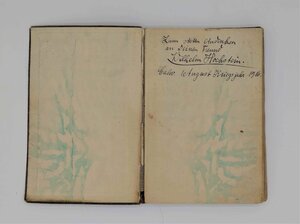 Zum steten Andenken
an Deinen Freund
Wilhelm Hechstein.
Calw. August Kriegsjahr 1916.